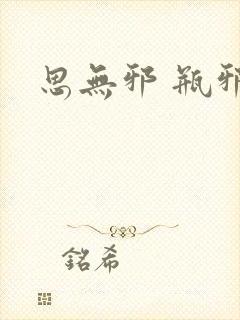 思無邪 瓶邪
銘希